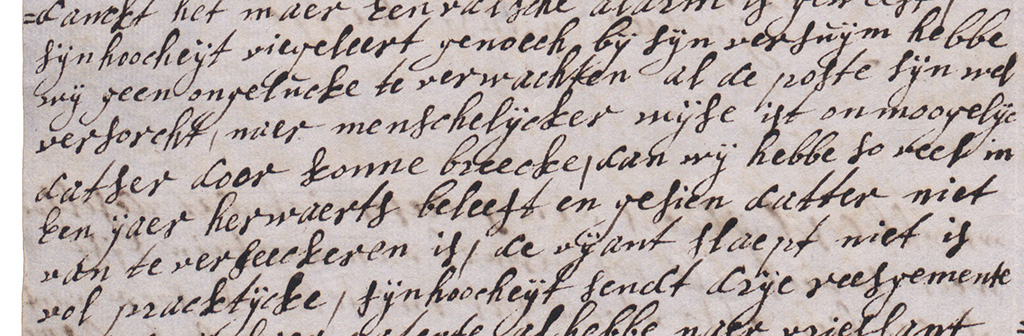 =danckt het maer een valsche alarm is geweest,
sijnhoocheijt viegeleert genoech, bij sijn versuijm hebbe
wij geen ongelucke te verwachten al de poste sijn wel
versorcht, naer menschelijcker wijse ist onmoogelijc
datser door konne breecke, dan wij hebbe so veel in
een jaer herwaerts beleeft en gesien datter niet
van te verseeckeren is, de vijant slaept niet is
vol pracktijcke, sijnhoocheijt sendt drije reesgemente
al hebbe naer vrieslant